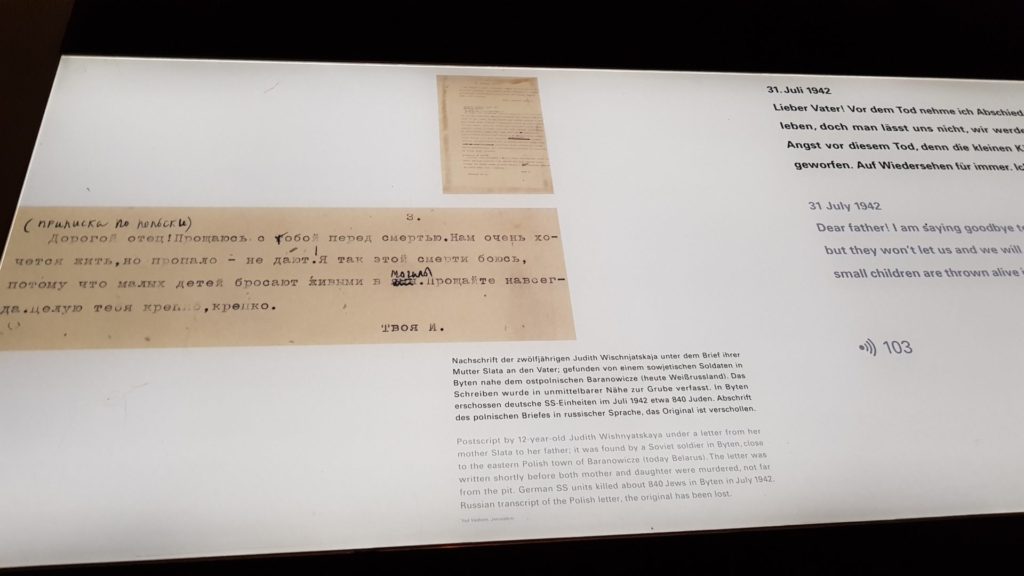 3.
(приписка по польски)
Дорогой отец!Прощаюсь с тобой перед смертью.Нам очень хо-
чется жить,но пропало - не дают.Я так этой смерти боюсь,
потому что малых детей бросают живыми в могилы.Прощайте навсег-
да.Целую тебя крепко,крепко.
Твоя И.
Nachschrift der zwölfjährigen Judith Wischnjatskaja unter dem Brief ihrer
Mutter Slata an den Vater; gefunden von einem sowjetischen Soldaten in
Byten nahe dem ostpolnischen Baranowicze (heute Weißrussland). Das
Schreiben wurde in unmittelbarer Nähe zur Grube verfasst. In Byten
erschossen deutsche SS-Einheiten im Juli 1942 etwa 840 Juden. Abschrift
des polnischen Briefes in russischer Sprache, das Original ist verschollen.
Postscript by 12-year-old Judith Wishnyatskaya under a letter from her
mother Slata to her father; it was found by a Soviet soldier in Byten, close
to the eastern Polish town of Baranowicze (today Belarus). The letter was
written shortly before both mother and daughter were murdered, not far
from the pit. German SS units killed about 840 Jews in Byten in July 1942.
Russian transcript of the Polish letter, the original has been lost.
Yad Vashem, Jerusalem
31. Juli 1942
Lieber Vater! Vor dem Tod nehme ich Abschied
leben, doch man lässt uns nicht, wir werde
Angst vor diesem Tod, denn die kleinen K
geworfen. Auf Wiedersehen für immer. Ic
31 July 1942
Dear father! I am saying goodbye t
but they won't let us and we will
small children are thrown alive i
103